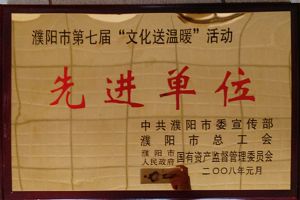 濮阳市第七届“文化送温暖”活动
先进单位
中共濮阳市委宣传部
濮阳市总工会
濮阳市人民政府国有资产监督管理委员会
二〇〇八年元月